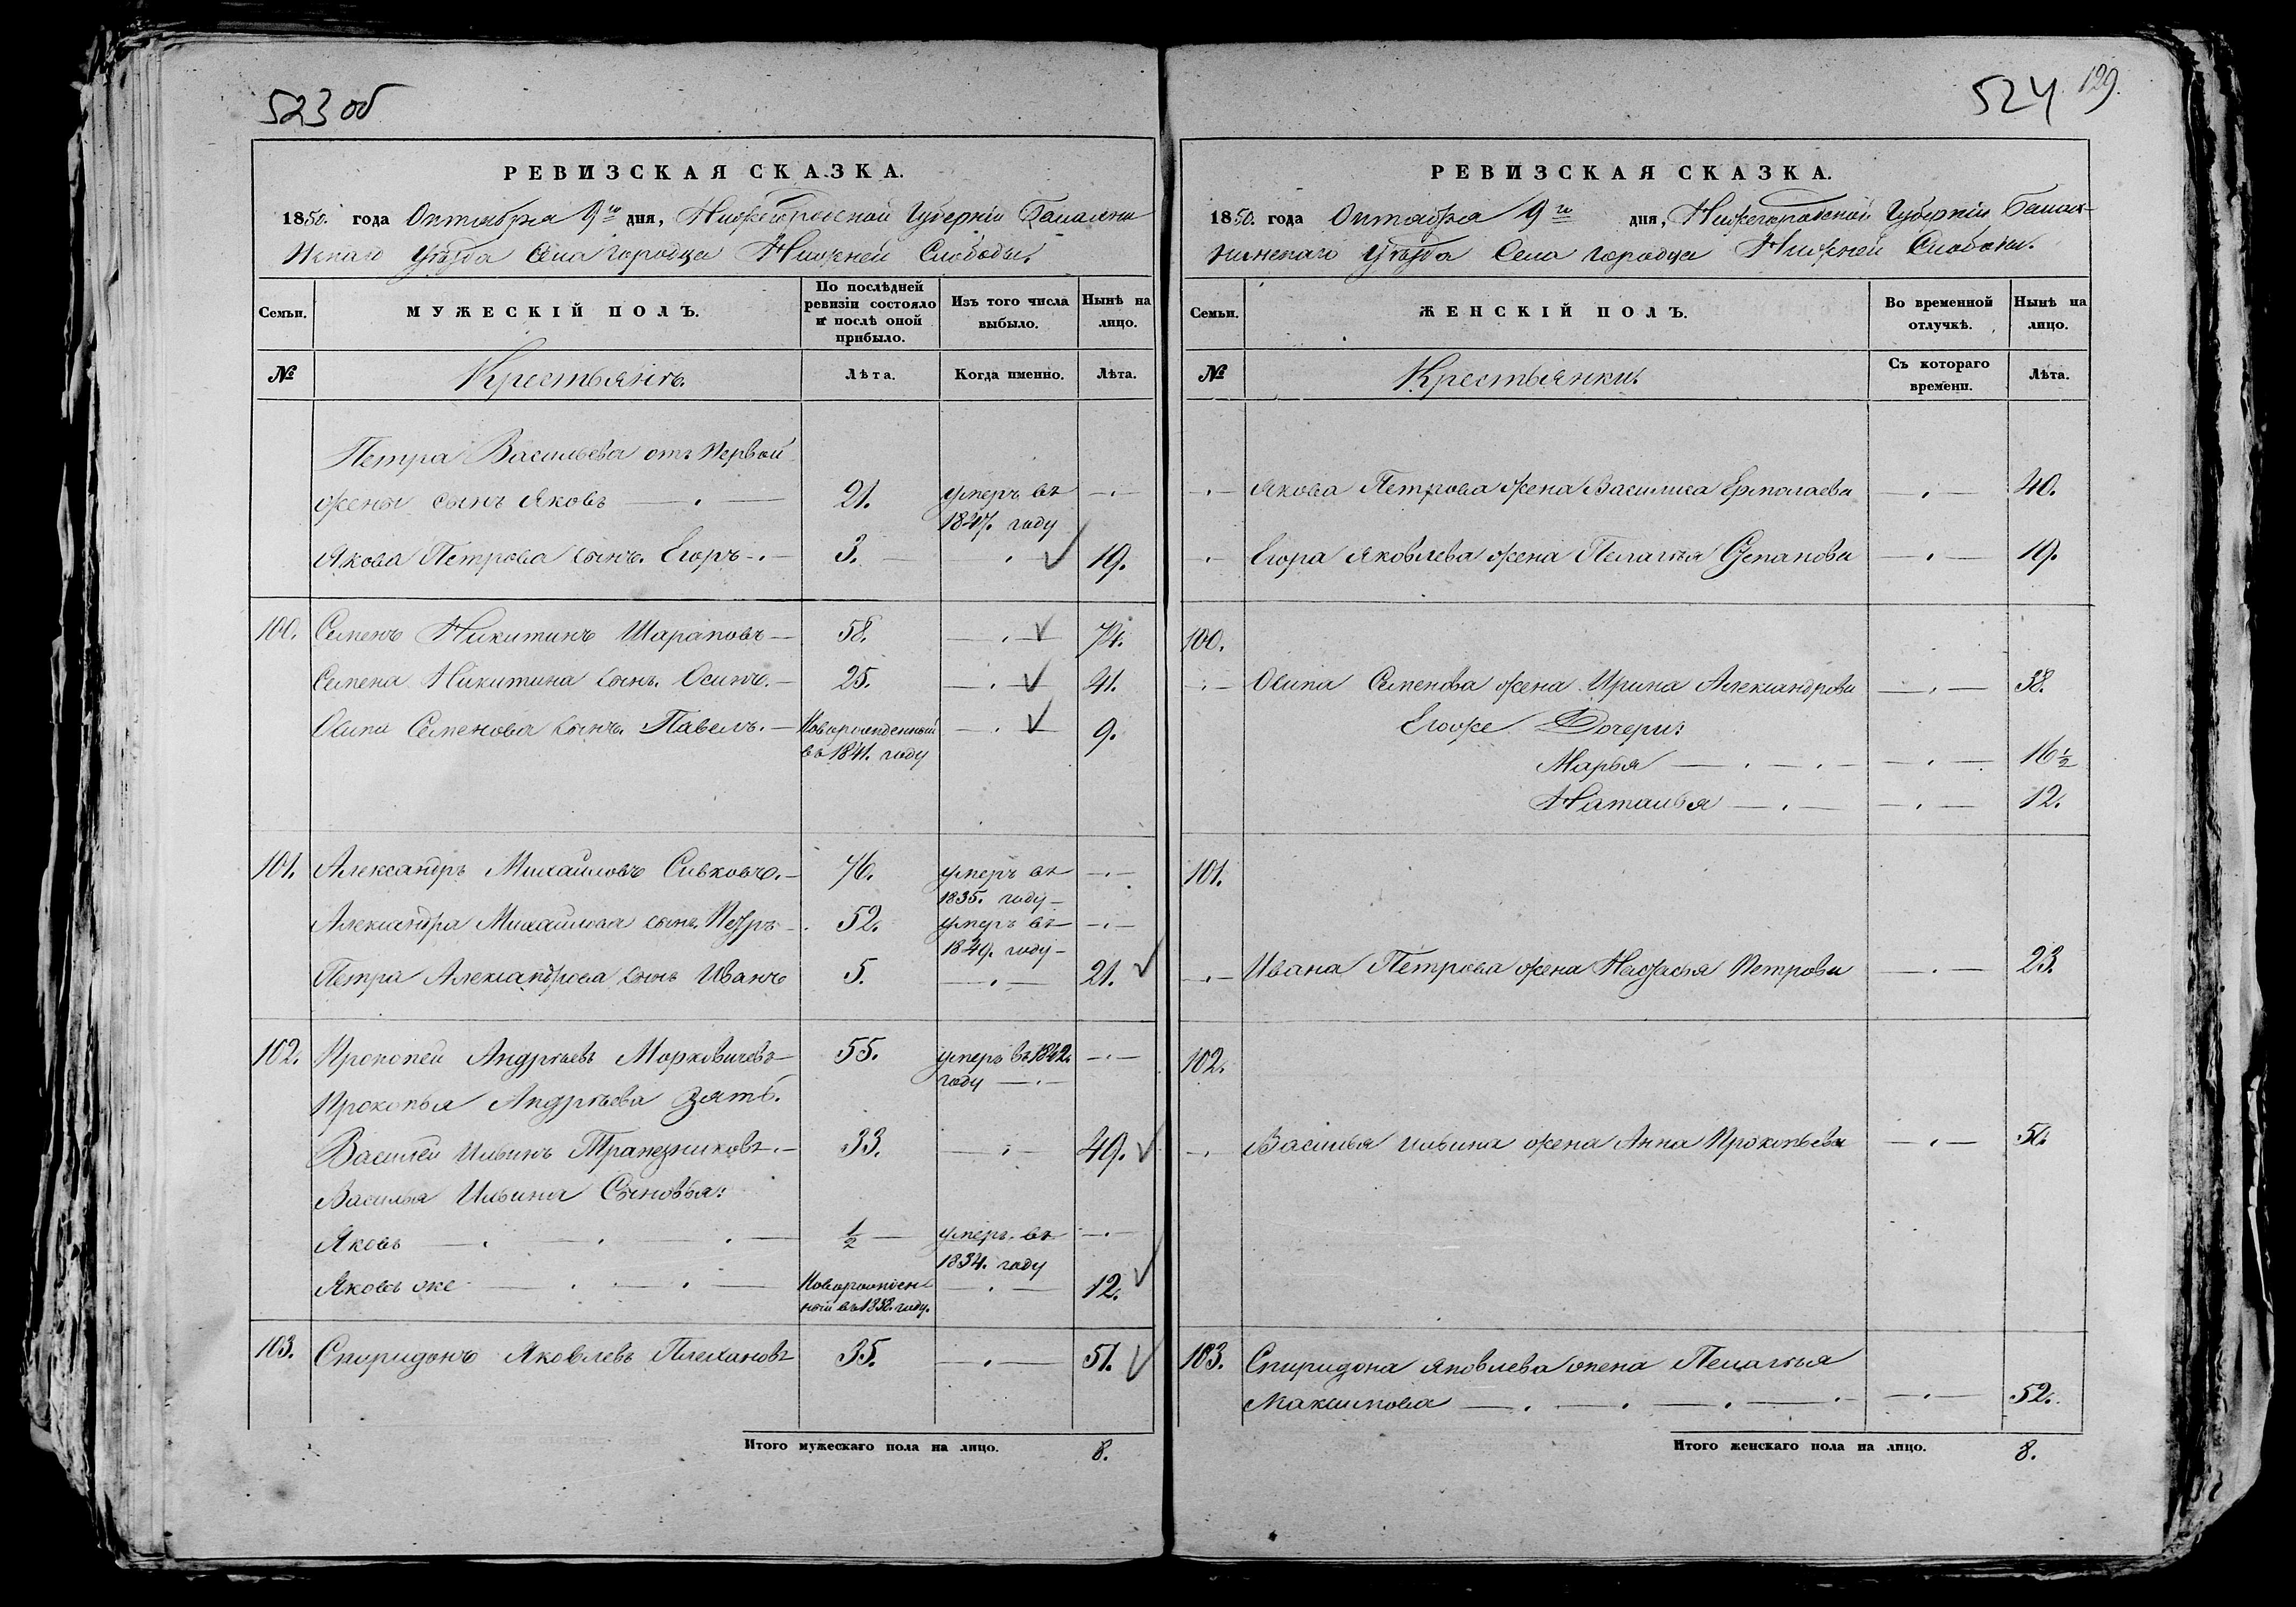 523 об
РЕВИЗСКАЯ СКАЗКА.
1850. года Октября 9го дня, Нижегородской Губерніи Балахни
нскаго Уѣзда Села Городца Нижней Слободы.
Семьи.
МУЖЕСКІЙ ПОЛЪ.
По послѣдней ревизіи состояло и послѣ оной прибыло.
Изъ того числа выбыло.
Нынѣ на лицо.
№
Крестьянъ.
Лѣта.
Когда именно.
Лѣта.
Петра Васильева отъ первой
жены сынъ Яковъ 21. умеръ въ
1847. году
Якова Петрова сынъ Егоръ 3. 19.
100. Семенъ Никитинъ Шараповъ 58. 74.
Семена Никитина сынъ Осипъ. 25. 41.
Осипа Семенова сынъ Павелъ. Новорожденный 9.
въ 1841. году
101. Александръ Михайловъ Сивковъ. 76. умеръ въ
1835. году
Александра Михайлова сынъ Петръ 52. умеръ въ
1849. году
Петра Александрова сынъ Иванъ 5. 21.
102. Прокопей Андреевъ Морковичевъ 55. умеръ въ 1842.
году
Прокопья Андреева зять.
Василей Ильинъ Трапезниковъ. 33. 49.
Василья Ильина Сыновья:
Яковъ ½ умеръ въ
1834. году
Яковъ же Новорожден 12.
ный въ 1838. году.
103. Спиридонъ Яковлевъ Плехановъ 35. 51.
Итого мужескаго пола на лицо. 8.
524 129.
РЕВИЗСКАЯ СКАЗКА.
1850. года Октября 9го дня, Нижегородской Губерніи Балах-
нинскаго Уѣзда Села Городца Нижней Слободы.
Семьи.
ЖЕНСКІЙ ПОЛЪ.
Во временной отлучкѣ.
Нынѣ на лицо.
№
Крестьянки.
Съ котораго времени.
Лѣта.
Якова Петрова жена Василиса Ермолаева 40.
Егора Яковлева жена Пелагья Степанова 19.
100.
Осипа Семенова жена Ирина Александрова 38.
Егоже Дочери:
Марья 16½
Наталья 12.
101.
Ивана Петрова жена Настасья Петрова 23.
102.
Василья Ильина жена Анна Прокопьева 50.
103. Спиридона Яковлева жена Пелагья
Максимова 52.
Итого женскаго пола на лицо. 8.